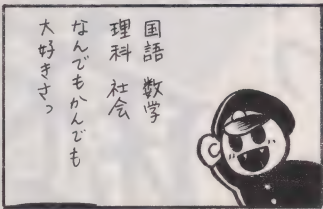 国語 数学
理科 社会
なんでもかんでも
大好きさっ